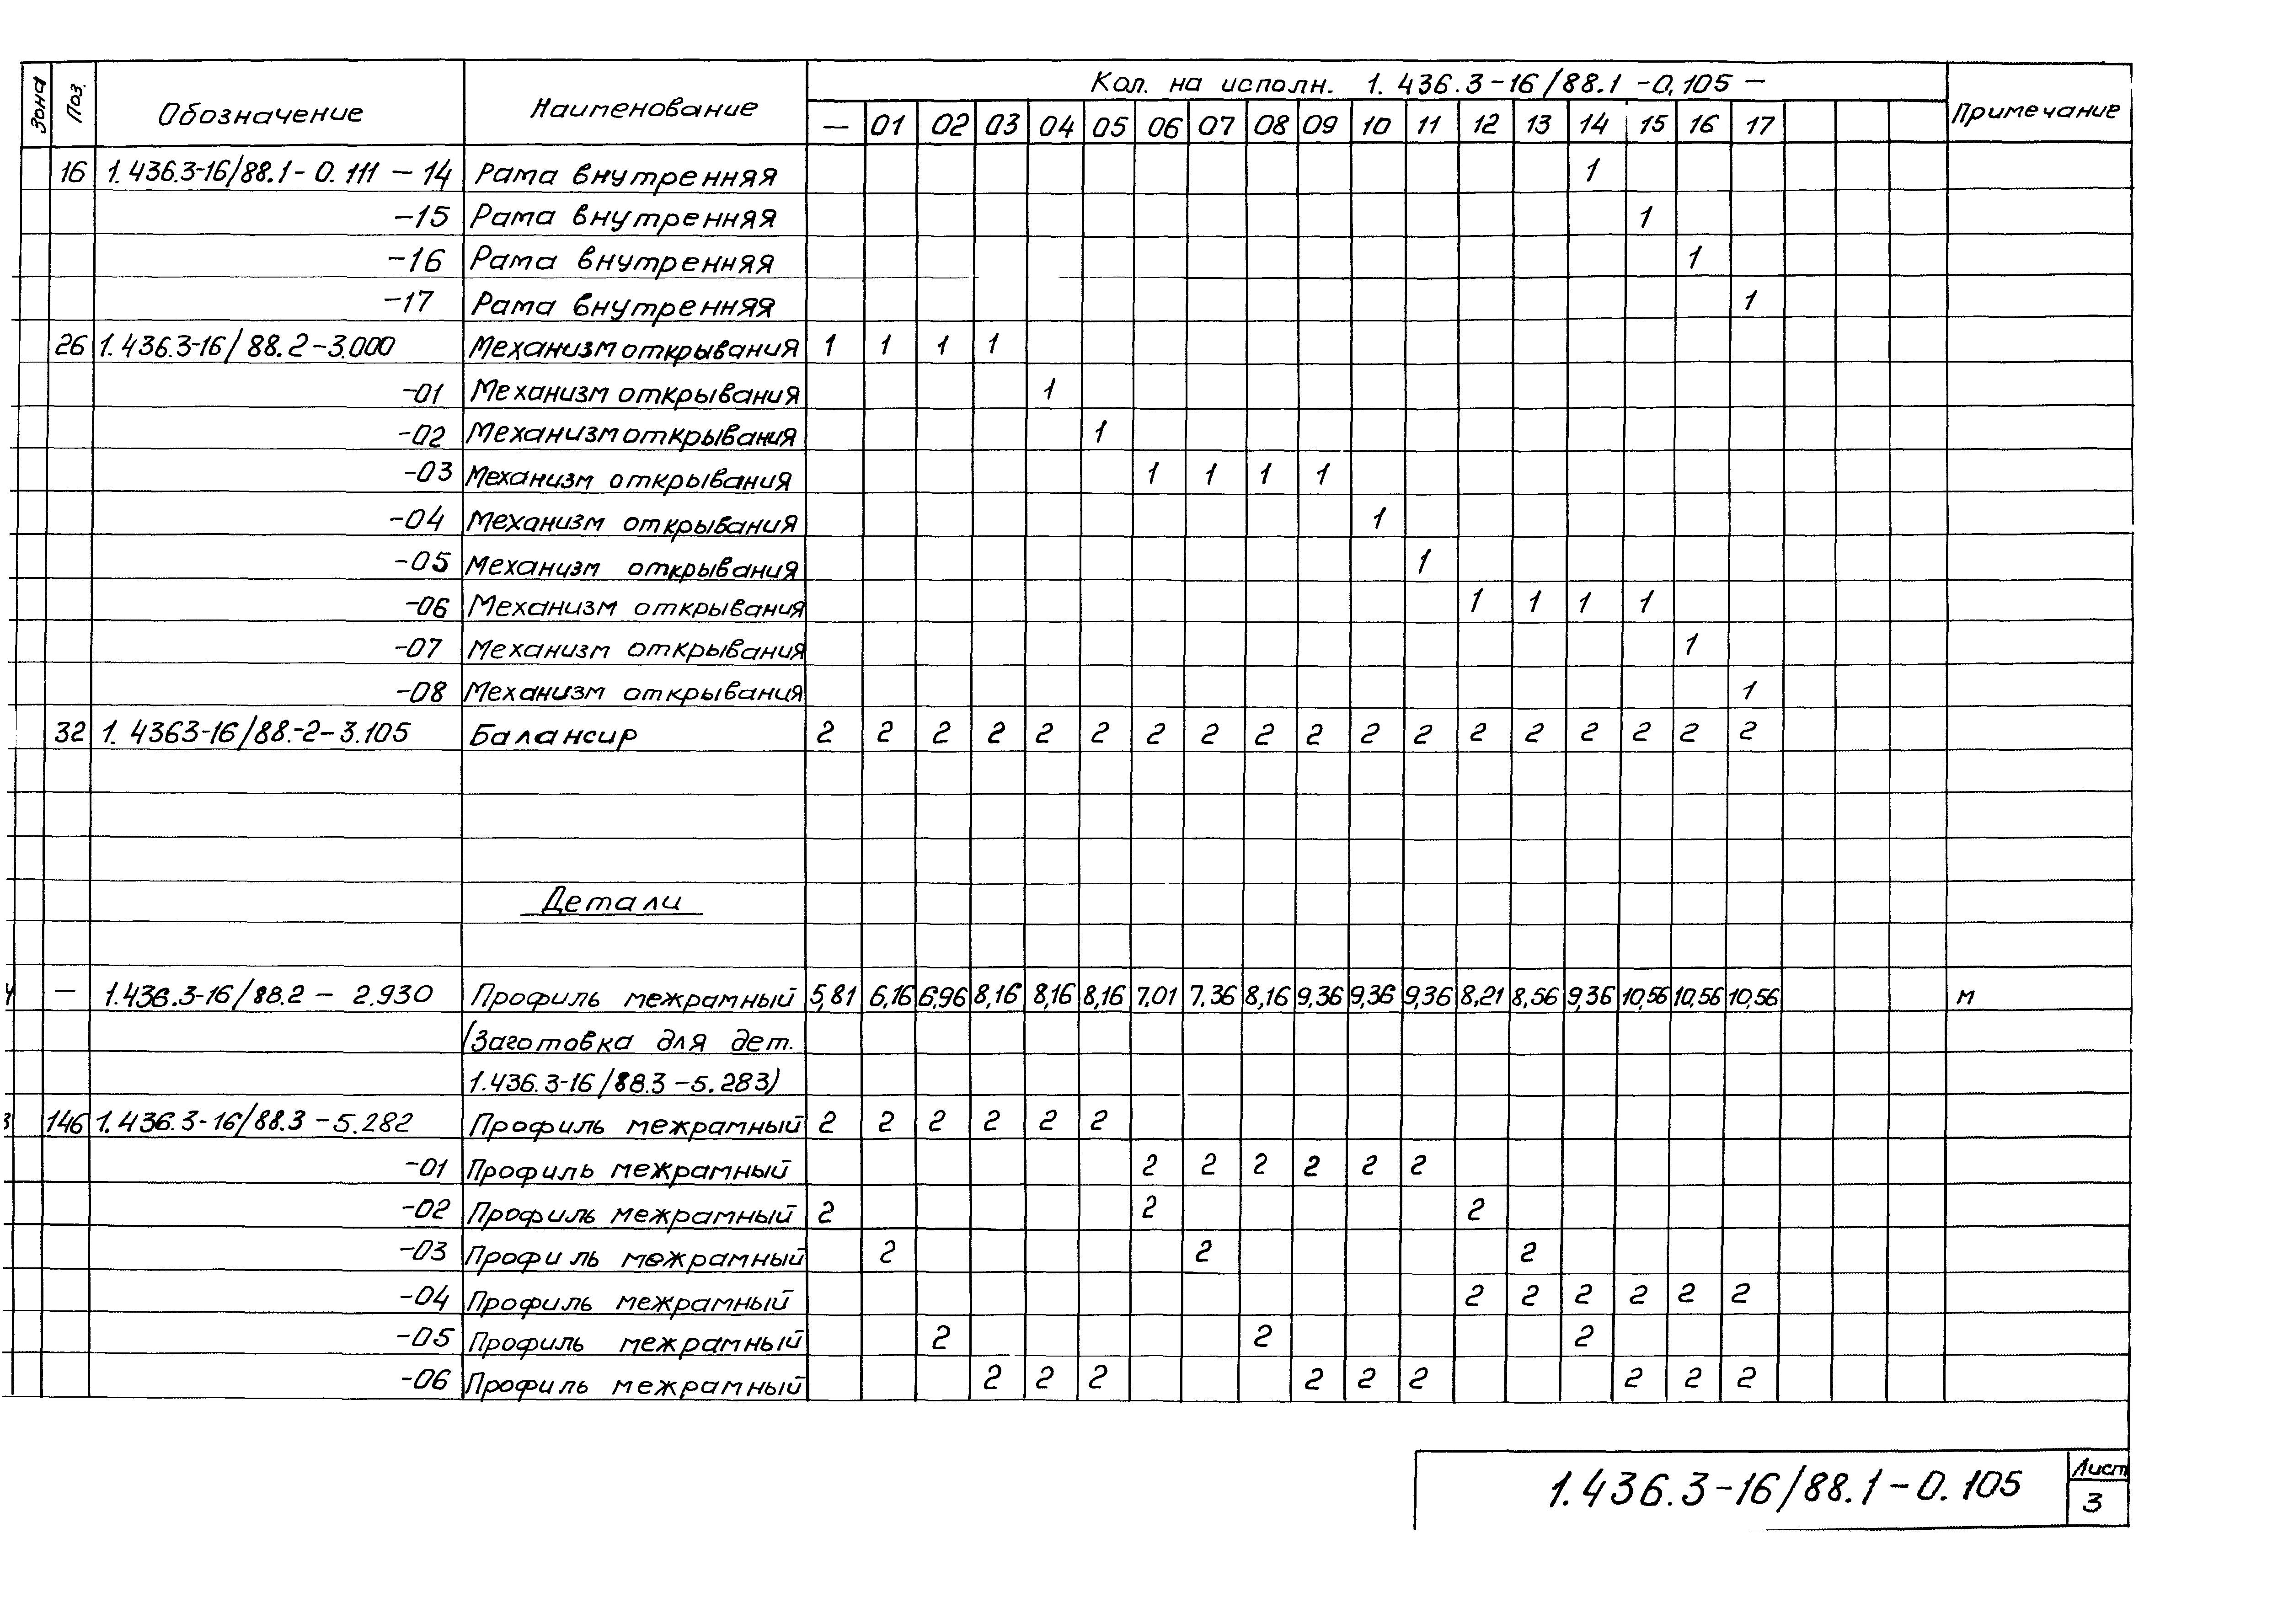 Зона Поз. Обозначение Наименование Кол. на исполн. 1.436.3-16/88.1-0,105 — Примечание
— 01 02 03 04 05 06 07 08 09 10 11 12 13 14 15 16 17
16 1.436.3-16/88.1-0.111-14 Рама внутренняя 1
-15 Рама внутренняя 1
-16 Рама внутренняя 1
-17 Рама внутренняя 1
26 1.436.3-16/88.2-3.000 Механизм открывания 1 1 1 1
-01 Механизм открывания 1
-02 Механизм открывания 1
-03 Механизм открывания 1 1 1 1
-04 Механизм открывания 1
-05 Механизм открывания 1
-06 Механизм открывания 1 1 1 1
-07 Механизм открывания 1
-08 Механизм открывания 1
32 1.4363-16/88.-2-3.105 Балансир 2 2 2 2 2 2 2 2 2 2 2 2 2 2 2 2 2 2
Детали
— 1.436.3-16/88.2-2.930 Профиль межрамный 5,81 6,16 6,96 8,16 8,16 8,16 7,01 7,36 8,16 9,36 9,36 9,36 8,21 8,56 9,36 10,56 10,56 10,56 м
(Заготовка для дет.
1.436.3-16/88.3-5.283)
146 1.436.3-16/88.3-5.282 Профиль межрамный 2 2 2 2 2 2
-01 Профиль межрамный 2 2 2 2 2 2
-02 Профиль межрамный 2 2 2
-03 Профиль межрамный 2 2 2
-04 Профиль межрамный 2 2 2 2 2 2
-05 Профиль межрамный 2 2 2
-06 Профиль межрамный 2 2 2 2 2 2 2 2 2
1.436.3-16/88.1-0.105
Лист
3